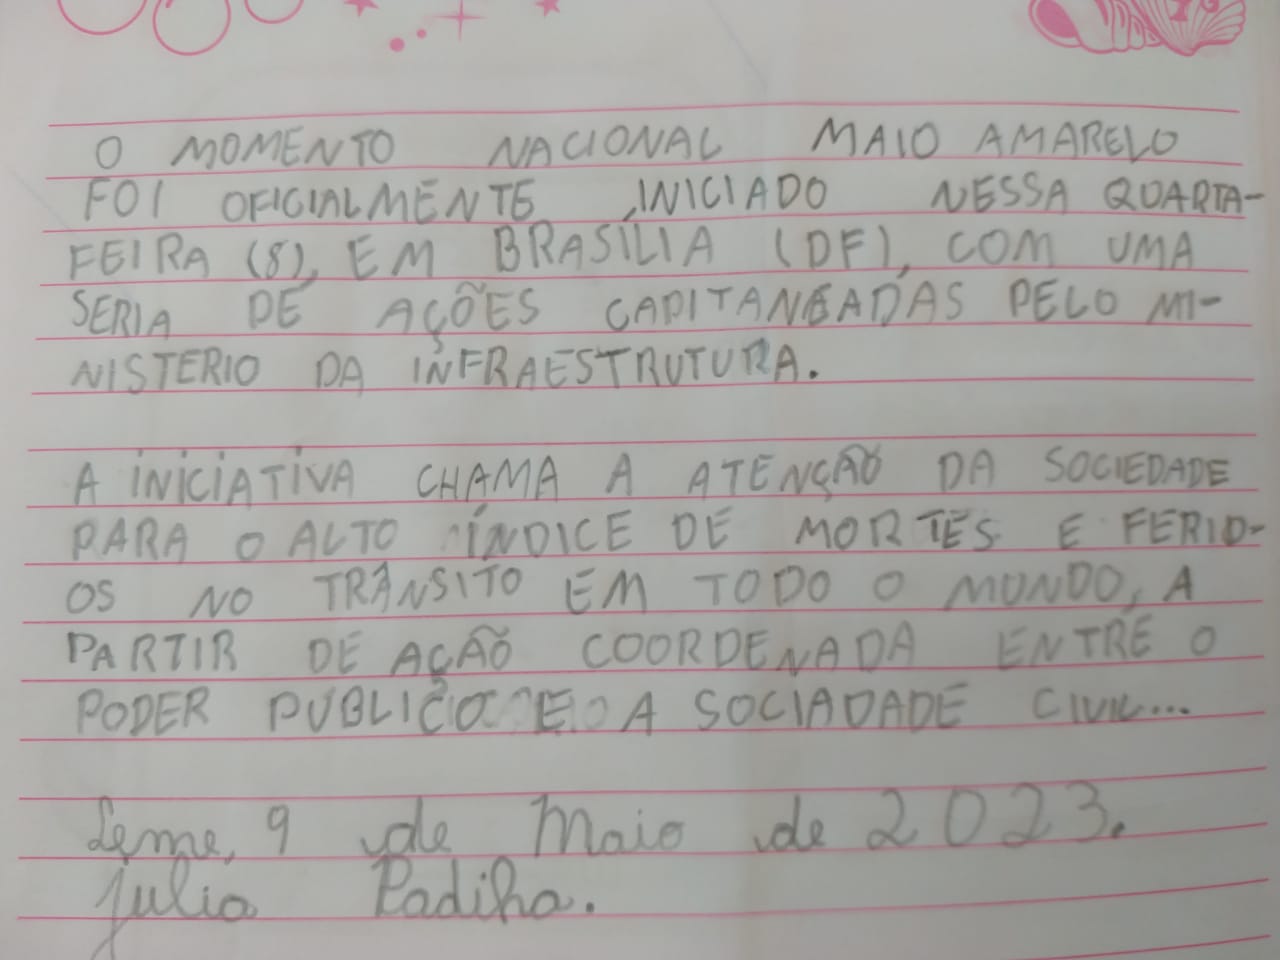 O MOMENTO NACIONAL MAIO AMARELO
FOI OFICIALMENTE INICIADO NESSA QUARTA-
FEIRA (8), EM BRASÍLIA (DF), COM UMA
SERIA DE AÇÕES CAPITANEADAS PELO MI-
NISTERIO DA INFRAESTRUTURA.
A INICIATIVA CHAMA A ATENÇÃO DA SOCIEDADE
PARA O ALTO ÍNDICE DE MORTES E FERID-
OS NO TRÂNSITO EM TODO O MUNDO, A
PARTIR DE AÇÃO COORDENADA ENTRE O
PODER PUBLICO E A SOCIADADE CIVIL...
Leme, 9 de Maio de 2023.
Julia Padiha.